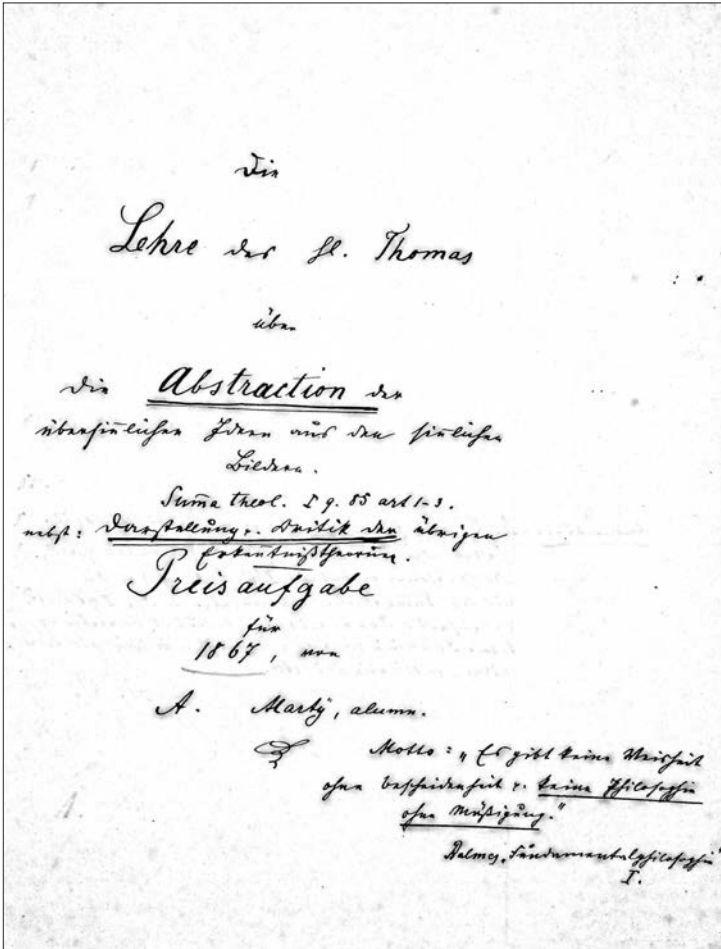 Die
Lehre des hl. Thomas
über
die Abstraction der
übersin̅lichen Ideen aus den sin̅lichen
Bildern.
Sum̅a theol. I q. 85 art 1-3.
nebst: Darstellung u. Kritik der übrigen
Erkentnißtheorien.
Preisaufgabe
für
1867, von
A. Marty, alumn.
Motto: „Es gibt keine Weisheit
ohne Bescheidenheit u. keine Philosophie
ohne Mäßigung."
Balmes, Fundamentalphilosophie
I.